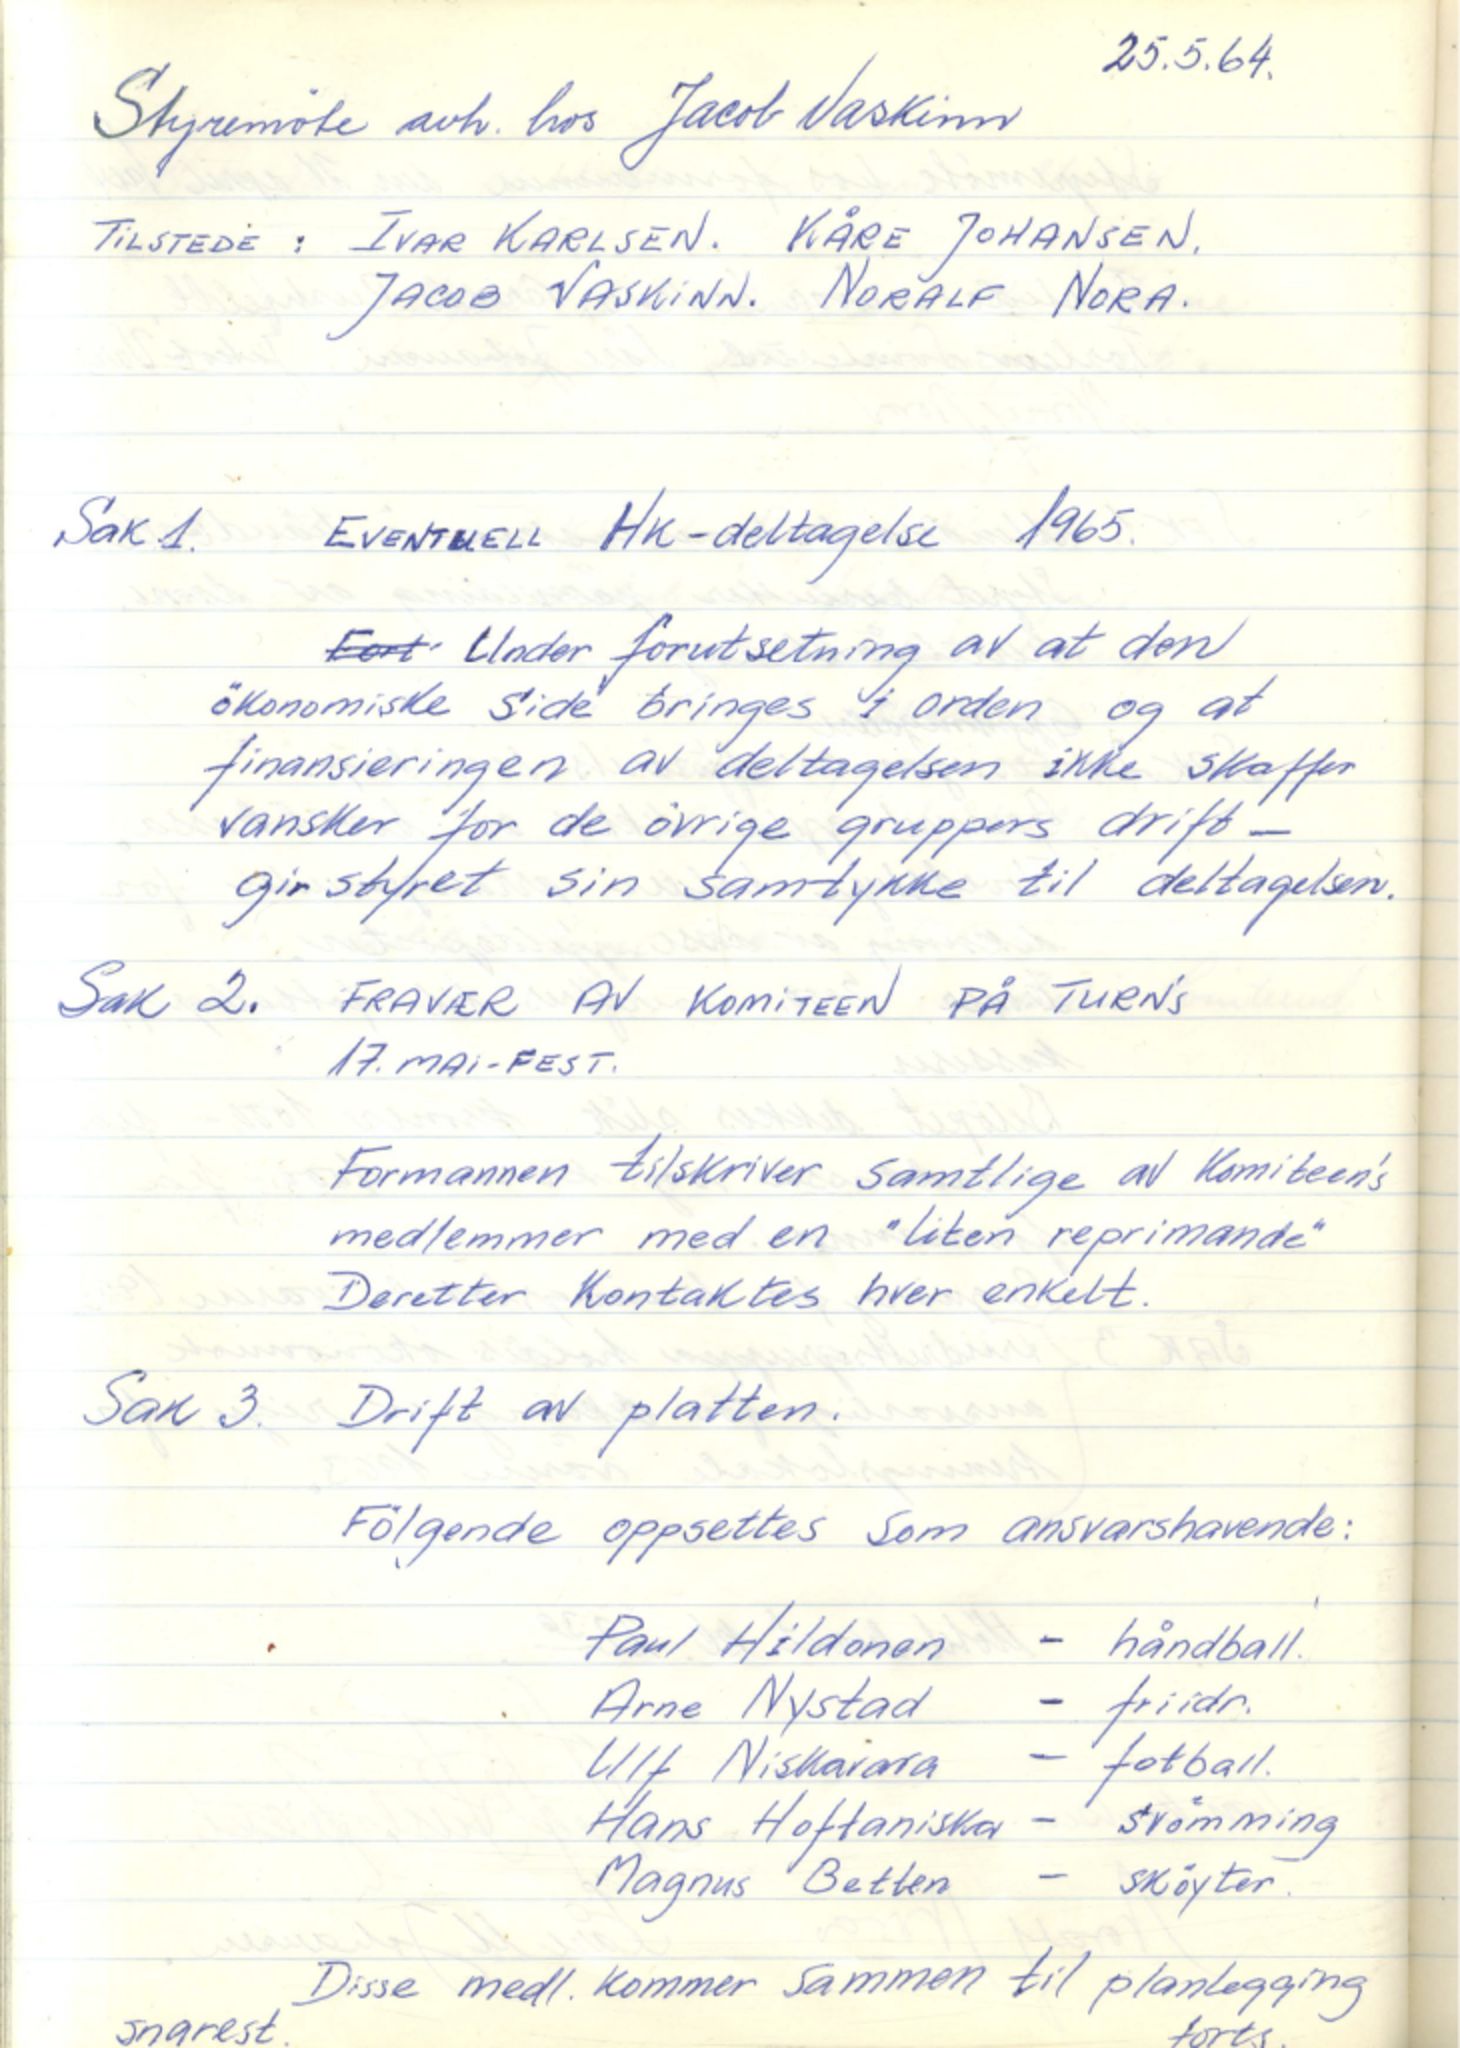 25.5.64.
Styremöte avh. hos Jacob Vaskinn
TILSTEDE : IVAR KARLSEN. KÅRE JOHANSEN.
JACOB VASKINN. NORALF NORA.
Sak 1. EVENTUELL HK-deltagelse 1965.
Fort Under forutsetning av at den
ökonomiske side bringes i orden og at
finansieringen av deltagelsen ikke skaffer
vansker for de övrige gruppers drift –
gir styret sin samtykke til deltagelsen.
Sak 2. FRAVÆR AV KOMITEEN PÅ TURN'S
17. MAI-FEST.
Formannen tilskriver samtlige av Komiteen's
medlemmer med en "liten reprimande"
Deretter kontaktes hver enkelt.
Sak 3. Drift av platten.
Fölgende oppsettes som ansvarshavende:
Paul Hildonen – håndball.
Arne Nystad – friidr.
Ulf Niskavara – fotball.
Hans Hoftaniska – svömming
Magnus Betten – sköyter.
Disse medl. kommer sammen til planlegging
snarest. forts.